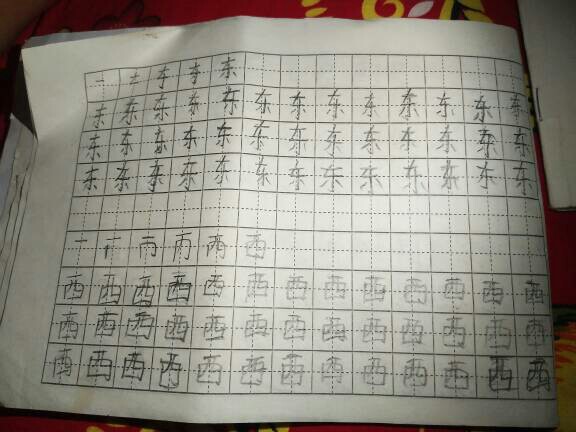 一 东
东 东 东 东 东 东 东 东 东 东 东 东 东
东 东 东 东 东 东 东 东 东 东 东 东 东
东 东 东 东 东 东 东 东 东 东 东 东 东
一 西
西 西 西 西 西 西 西 西 西 西 西 西 西
西 西 西 西 西 西 西 西 西 西 西 西 西
西 西 西 西 西 西 西 西 西 西 西 西 西